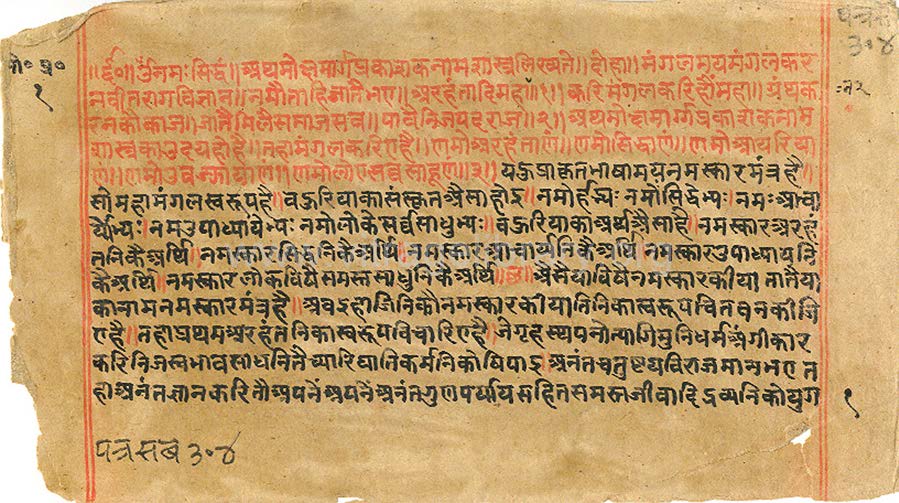 पत्र
३०४
मो० प्र०
१
॥६०॥ ॐनमः सिद्धं॥ अथमोक्षमार्गप्रकाशकनामशास्त्रलिख्यते॥ दोहा॥ मंगलमयमंगलकर
नवीतरागविज्ञान॥ नमौताहिजातैभए॥ अरहंतादिमहा॥१॥ करिमंगलकरिहौंमहा॥ ग्रंथक
रनकोकाज॥ जातैमिलैसमाजसब॥ पावैनिजपदराज॥२॥ अथमोक्षमार्गप्रकाशकनाम
शास्त्रकाउदयहोहै॥ तहांमंगलकरिएहै॥ णमोअरहंताणं॥ णमोसिद्धाणं॥ णमोआयरिया
णं॥ णमोउवज्झायाणं॥ णमोलोएसव्वसाहूणं॥१॥ यहुप्राकृतभाषामयनमस्कारमंत्रहै
सोमहामंगलस्वरूपहै। बहुरियाकासंस्कृतऐसाहोइ। नमोर्हद्भ्यः नमोसिद्धेभ्यः। नमःआचा
र्येभ्यः नमउपाध्यायेभ्यः नमोलोकेसर्वसाधुभ्यः। बहुरियाकाअर्थऐसाहै। नमस्कारअरहं
तनिकैअर्थि। नमस्कारसिद्धनिकैअर्थि। नमस्कारआचार्यनिकैअर्थि। नमस्कारउपाध्यायनि
कैअर्थि। नमस्कारलोकविषैसमस्तसाधुनिकैअर्थि। ऐसैयाविषैनमस्कारकीया तातैया
कानामनमस्कारमंत्रहै। अबइहांजिनिकौनमस्कारकीयातिनिकास्वरूपचिंतवनकीजि
एहै। तहांप्रथमअरहंतनिकास्वरूपविचारिएहै। जेगृहस्थपनोंत्यागिमुनिधर्मअंगीकार
करिनिजस्वभावसाधनतैच्यारिघातिकर्मनिकोषिपाइ। अनंतचतुष्टयविराजमानभए त
हांअनंतज्ञानकरितौअपनेअपनेअनंतगुणपर्यायसहितसमस्तजीवादिद्रव्यनिकोयुग
१
पत्र सब ३०४